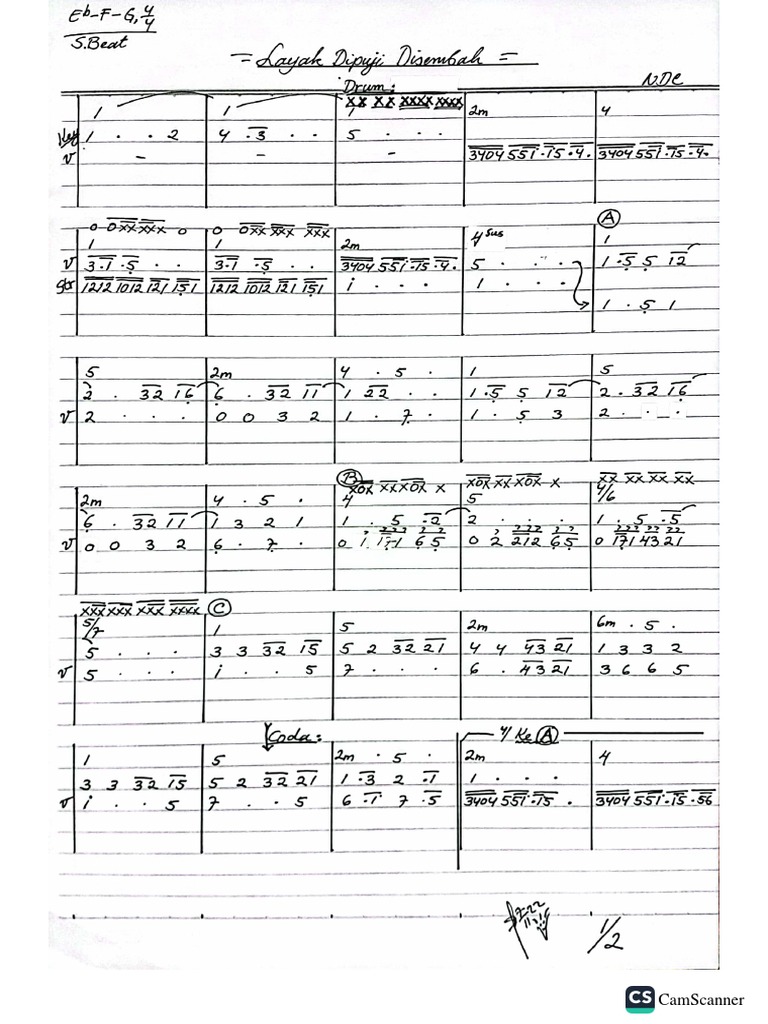 Eb-F-G, 4/4
S.Beat
= Layak Dipuji Disembah =
Drum:
NDC
xx xx xxxx xxxx
1 1 1 2m 4
Key 1 . . 2 4 .3 . . 5 . . .
V - - - 3404 551.15.4. 3404 551.15.4.
0 0xx xxx 0 0 0xx xxx xxx A
1 1 2m 4sus 1
V 3.1 .5 . . 3.1 .5 . . 3404 551.15.4. 5 . . . 1 .5 5 12
1212 1012 121 151 1212 1012 121 151 i . . . 1 . . .
1 . 5 1
5 2m 4 . 5 . 1 5
2 . 32 16 6 . 32 11 1 22 . . 1 .5 5 12 2 . 32 16
V 2 . . . 0 0 3 2 1 . 7 . 1 . 5 3 2 . . .
B xox xxxox x xox xx xox x xx xx xx xx
2m 4 . 5 . 4 5 4/6
6 . 32 11 1 3 2 1 1 . 5 .2 2 . . . 1 . 5 .5
V 0 0 3 2 6 . 7 . 0 1 171 65 0 2 212 65 0 171 43 21
xxx xxx xxx xxxx C
5/7 1 5 2m 6m . 5 .
5 . . . 3 3 32 15 5 2 32 21 4 4 43 21 1 3 3 2
V 5 . . . i . . 5 7 . . . 6 . 43 21 3 6 6 5
Coda: 4/ Ke A
1 5 2m . 5 . 2m 4
3 3 32 15 5 2 32 21 1 .3 2 .1 1 . . .
V i . . 5 7 . . 5 6 .1 7 .5 3404 551.15 . 3404 551.15.56
1/2
CS CamScanner